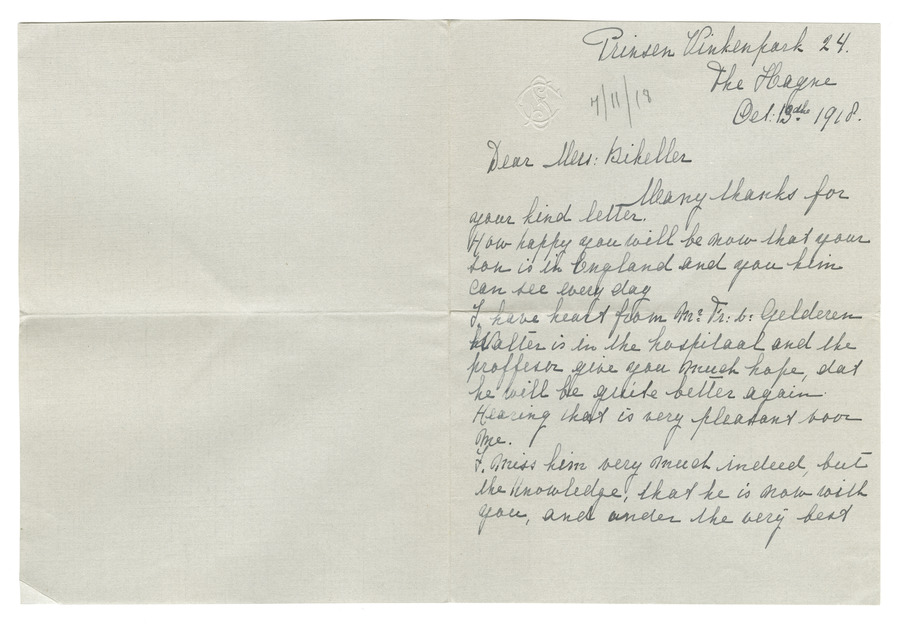 Prinsen Vinkenpark 24.
The Hague
7/11/18
Oct: 13the 1918.
Dear Mrss:
Many thanks for
your kind letter.
How happy you will be now that your
son is in England and you him
can see every day
I. have heart from Mr. Fr: v: Gelderen
Walter is in the hospitaal and the
proffesor give you much hope, dat
he will be quite better again.
Hearing that is very pleasant voor
me.
I. miss him very much indeed, but
the knowledge, that he is now with
you, and under the very best